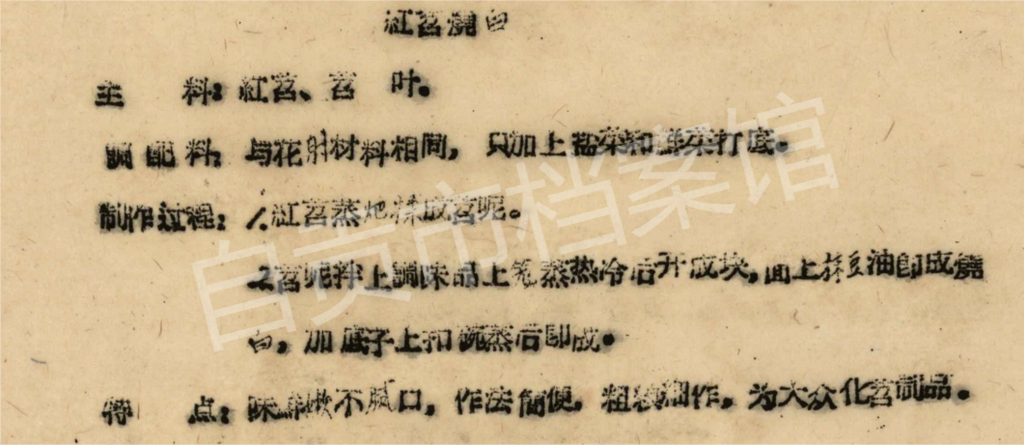 紅苕燒白
主 料：紅苕、苕 叶。
調配料：与花肘材料相同，只加上盐菜和鲜菜打底。
制作过程：1.紅苕蒸𤆵揉成苕呢。
2.苕呢拌上調味品上笼蒸热冷后开成块，面上抹豆油即成燒
白，加底子上扣碗蒸后即成。
特 点：味 不 口，作法簡便，粗粮細作，为大众化苕制品。
自贡市档案馆